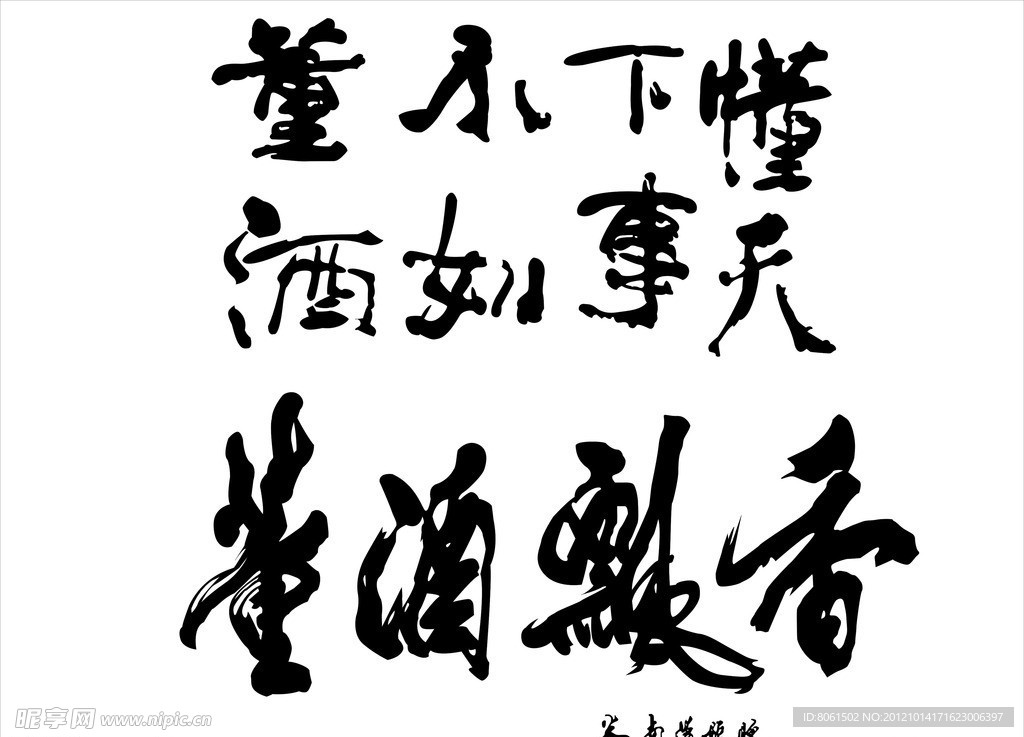 懂天
下事
不如
董酒
董酒飘香
昵图网 www.nipic.cn
ID:8061502 NO:20121014171623006397